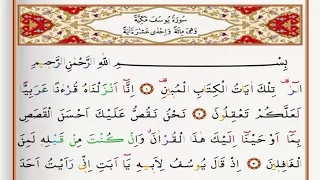 سُورَةُ يُوسُفَ مَكِّيَّةٌ
وَهِيَ مِائَةٌ وَاِحْدٰى عَشْرَةَ اٰيَةً
بِسْــــــمِ اللّٰهِ الرَّحْمٰنِ الرَّحِيمِ
الٓرٰ تِلْكَ اٰيَاتُ الْكِتَابِ الْمُبِينِ ۝ اِنَّٓا اَنْزَلْنَاهُ قُرْاٰنًا عَرَبِيًّا
لَعَلَّكُمْ تَعْقِلُونَ ۝ نَحْنُ نَقُصُّ عَلَيْكَ اَحْسَنَ الْقَصَصِ
بِمَٓا اَوْحَيْنَٓا اِلَيْكَ هٰذَا الْقُرْاٰنَۗ وَاِنْ كُنْتَ مِنْ قَبْلِهِ لَمِنَ
الْغَافِلِينَ ۝ اِذْ قَالَ يُوسُفُ لِاَبِيهِ يَٓا اَبَتِ اِنِّي رَاَيْتُ اَحَدَ